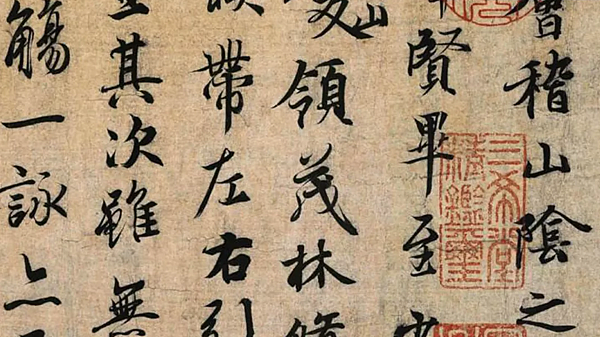 會稽山陰之
賢畢至
山
領茂林脩
帶左右引
其次雖無
觴一詠亦
三希堂
精鑑璽